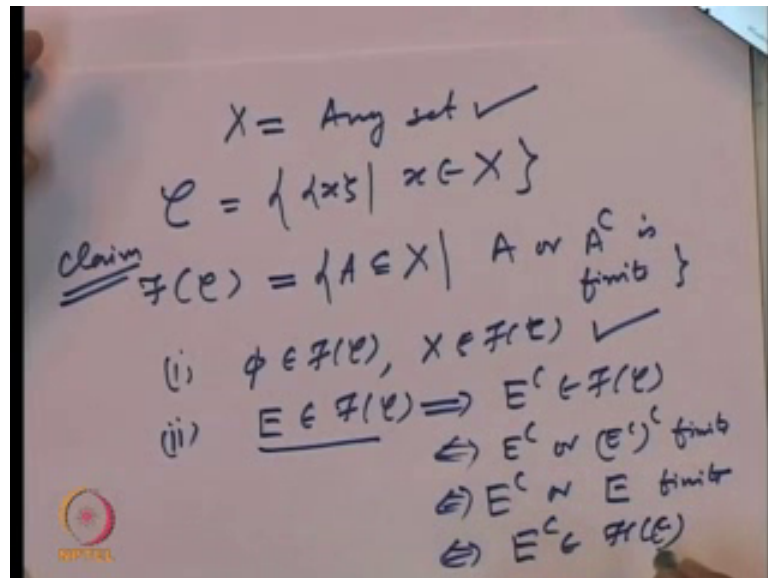 X = Any set ✓
C = { {x} | x ∈ X }
Claim
F(C) = { A ⊆ X | A or A^C is
finite }
(i) ϕ ∈ F(C), X ∈ F(C) ✓
(ii) E ∈ F(C) ⟹ E^C ∈ F(C)
⇔ E^C or (E^C)^C finite
⇔ E^C or E finite
⇔ E^C ∈ F(C)
NPTEL